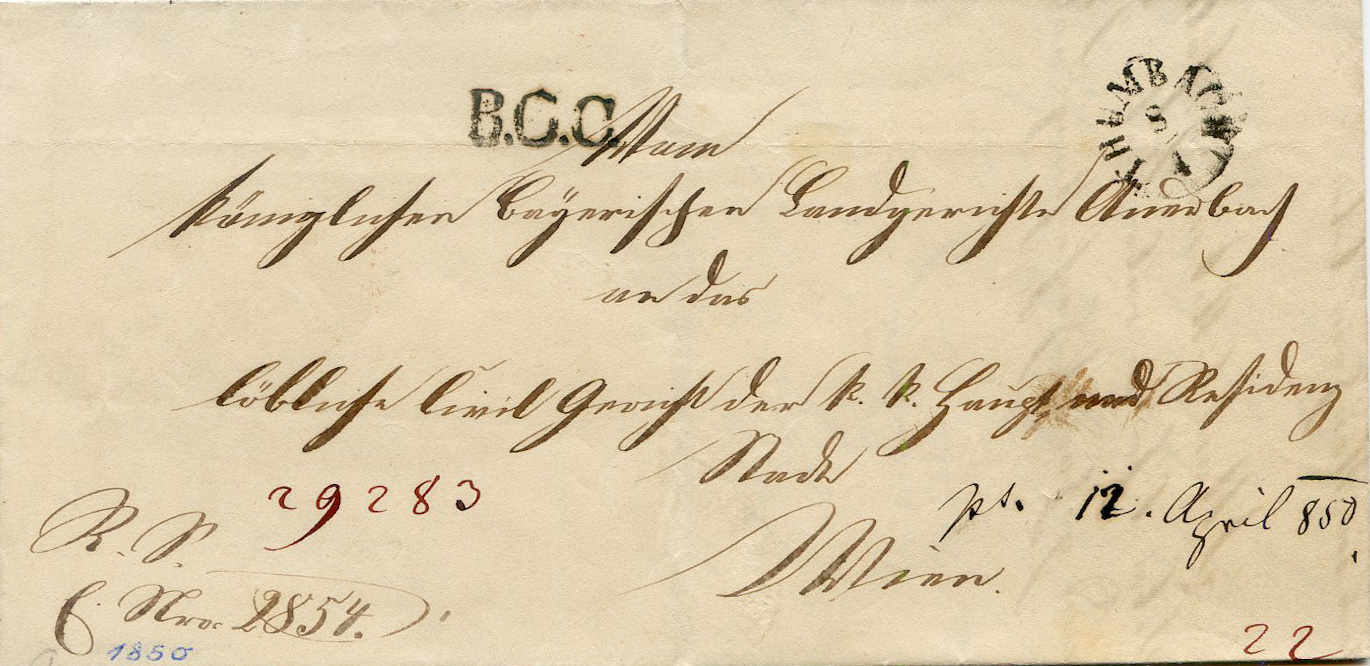 B.G.C.
THUMBACH
8
4
Vom
Königlichen bayerischen Landgerichte Auerbach
an das
löbliche Civil Gericht der k. k. Haupt und Residenz
Stadt
Wien.
29283
R. S.
pt. 12. April 850
E. Nro 2854.
1850
22